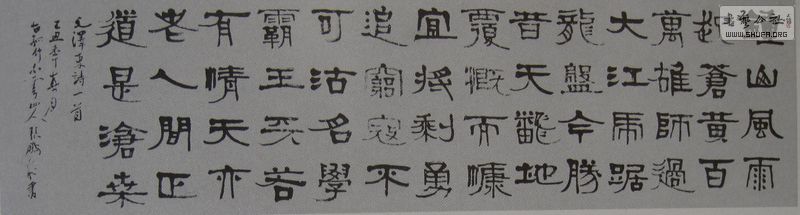 山風雨
起蒼黃百
萬雄師過
大江虎踞
龍盤今勝
昔天飜地
覆慨而慷
宜將剩勇
追窮寇不
可沽名學
霸王天若
有情天亦
老人間正
道是滄桒
毛澤東詩一首
乙丑年春月
WWW.SHUFA.ORG